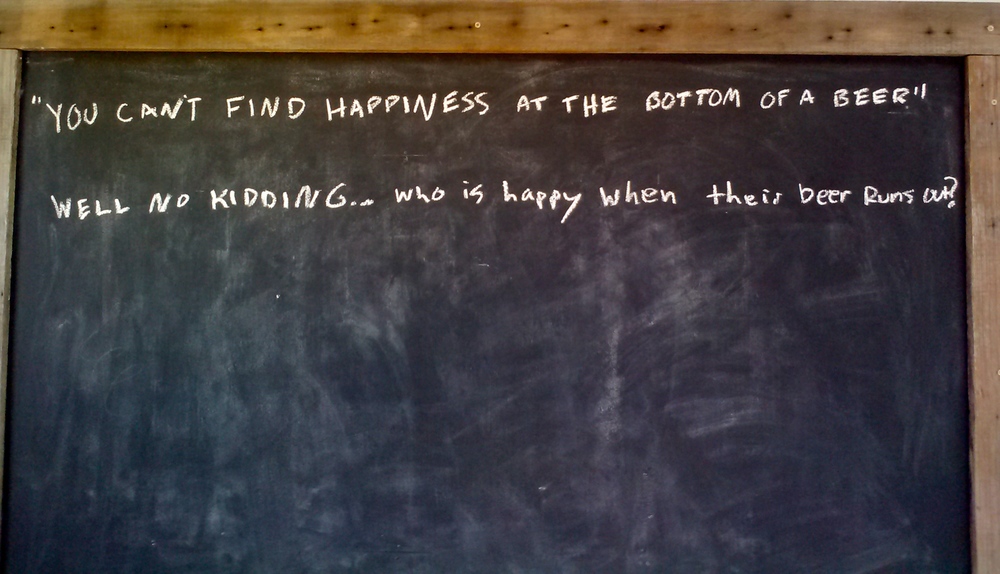 "YOU CAN'T FIND HAPPINESS AT THE BOTTOM OF A BEER"
WELL NO KIDDING... who is happy when their beer Runs out?